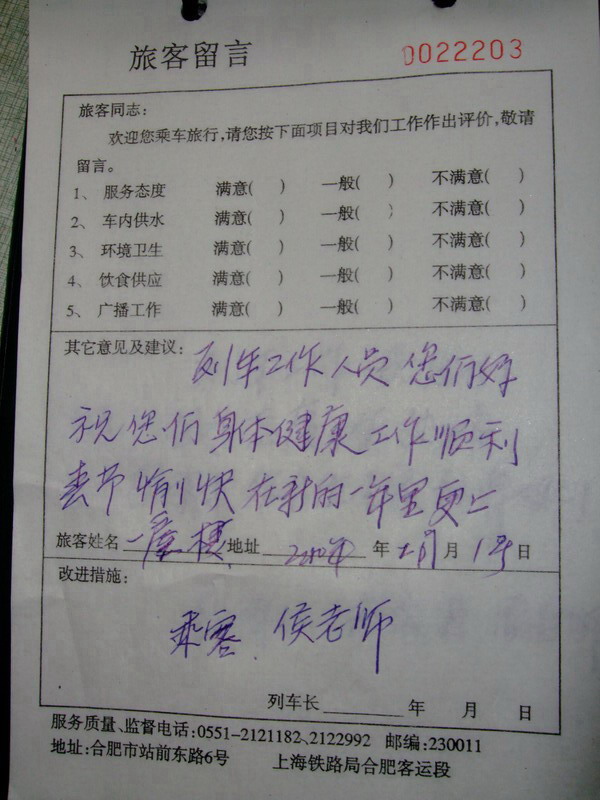 旅客留言 0022203
旅客同志:
欢迎您乘车旅行,请您按下面项目对我们工作作出评价,敬请
留言。
1、 服务态度 满意( ) 一般( ) 不满意( )
2、 车内供水 满意( ) 一般( ) 不满意( )
3、 环境卫生 满意( ) 一般( ) 不满意( )
4、 饮食供应 满意( ) 一般( ) 不满意( )
5、 广播工作 满意( ) 一般( ) 不满意( )
其它意见及建议: 列车工作人员您们好
祝您们身体健康工作顺利
春节愉快在新的一年里更上
旅客姓名 一层楼 地址 2010年 年 月 1号 日
改进措施:
乘客 侯老师
列车长 年 月 日
服务质量、监督电话:0551-2121182、2122992 邮编:230011
地址:合肥市站前东路6号 上海铁路局合肥客运段